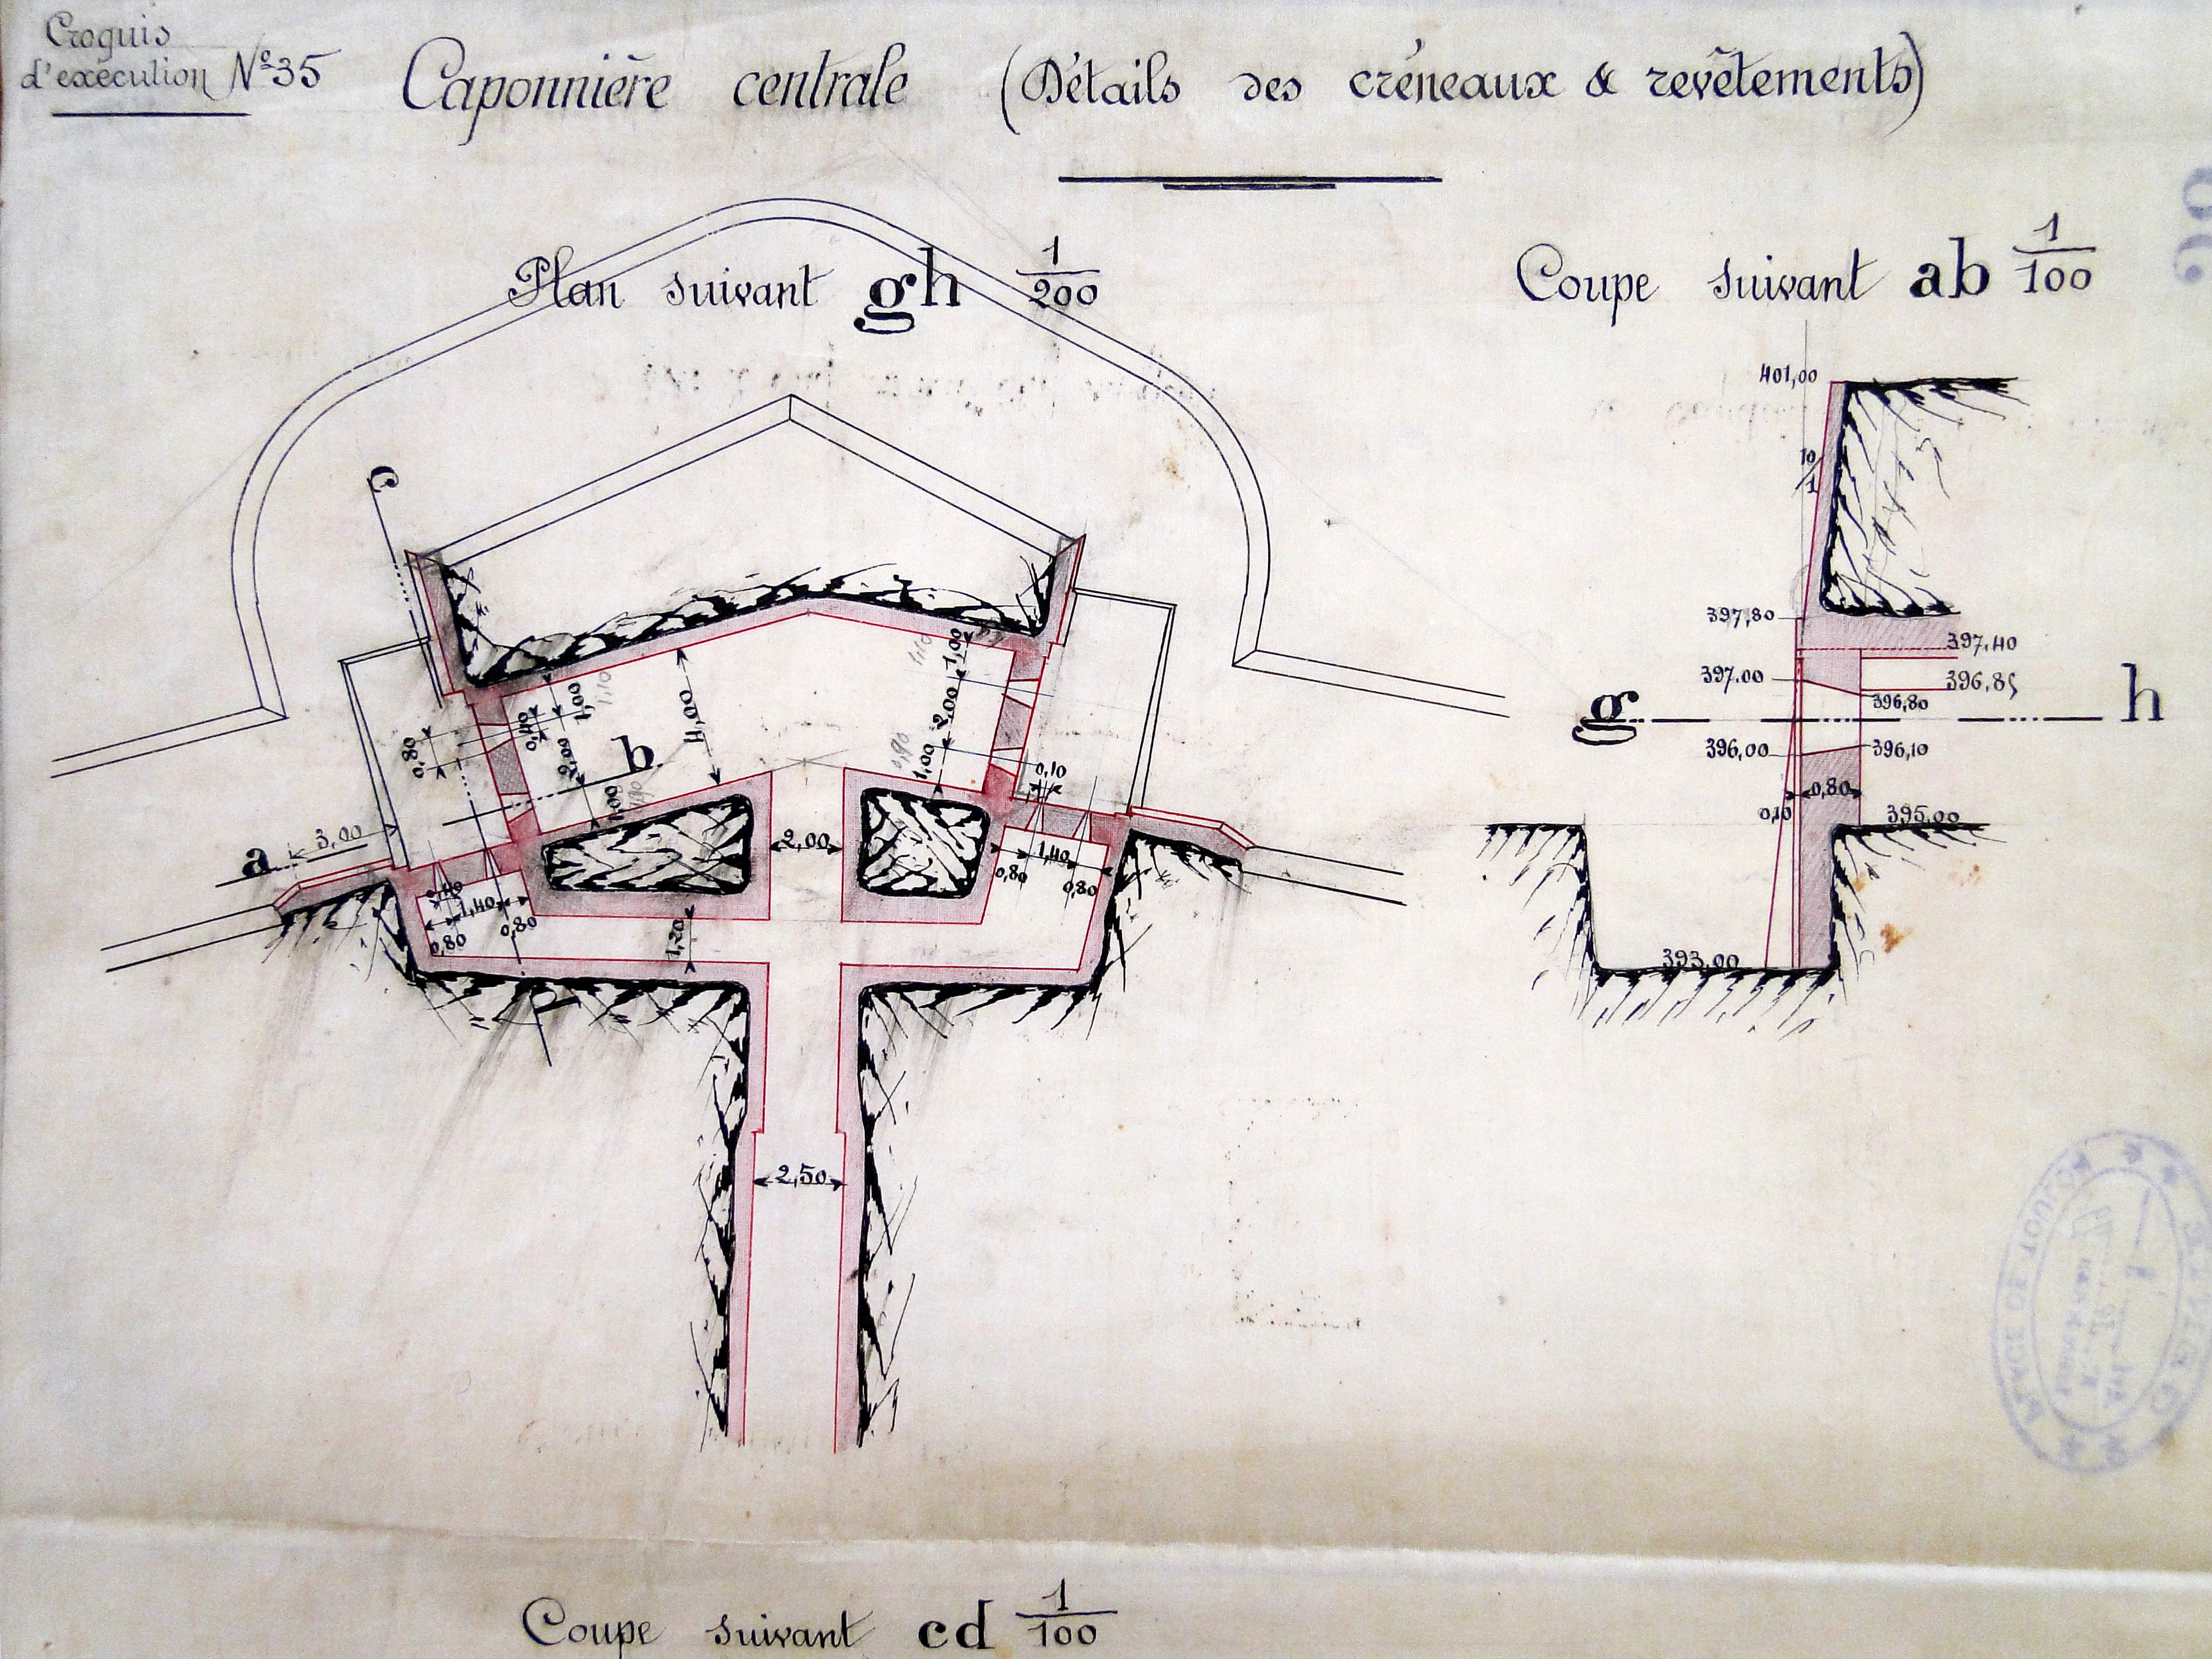 Croquis
d'exécution N° 35
Caponnière centrale (Détails des créneaux & revêtements)
Plan suivant gh 1/200
Coupe suivant ab 1/100
c
401,00
10/1
397,80
397,40
397.00
396,85
396,80
g
h
396,00
396,10
0,80
0,10
395,00
393,00
1,00
1,10
1,00
1,10
0,40
0,80
2,00
4,00
2,00
b
1,00
0,90
1,00
0,10
a
3,00
2,00
0,40
1,40
0,80
0,80
1,20
0,80
1,40
0,80
2,50
PLACE DE TOULON
Coupe suivant cd 1/100